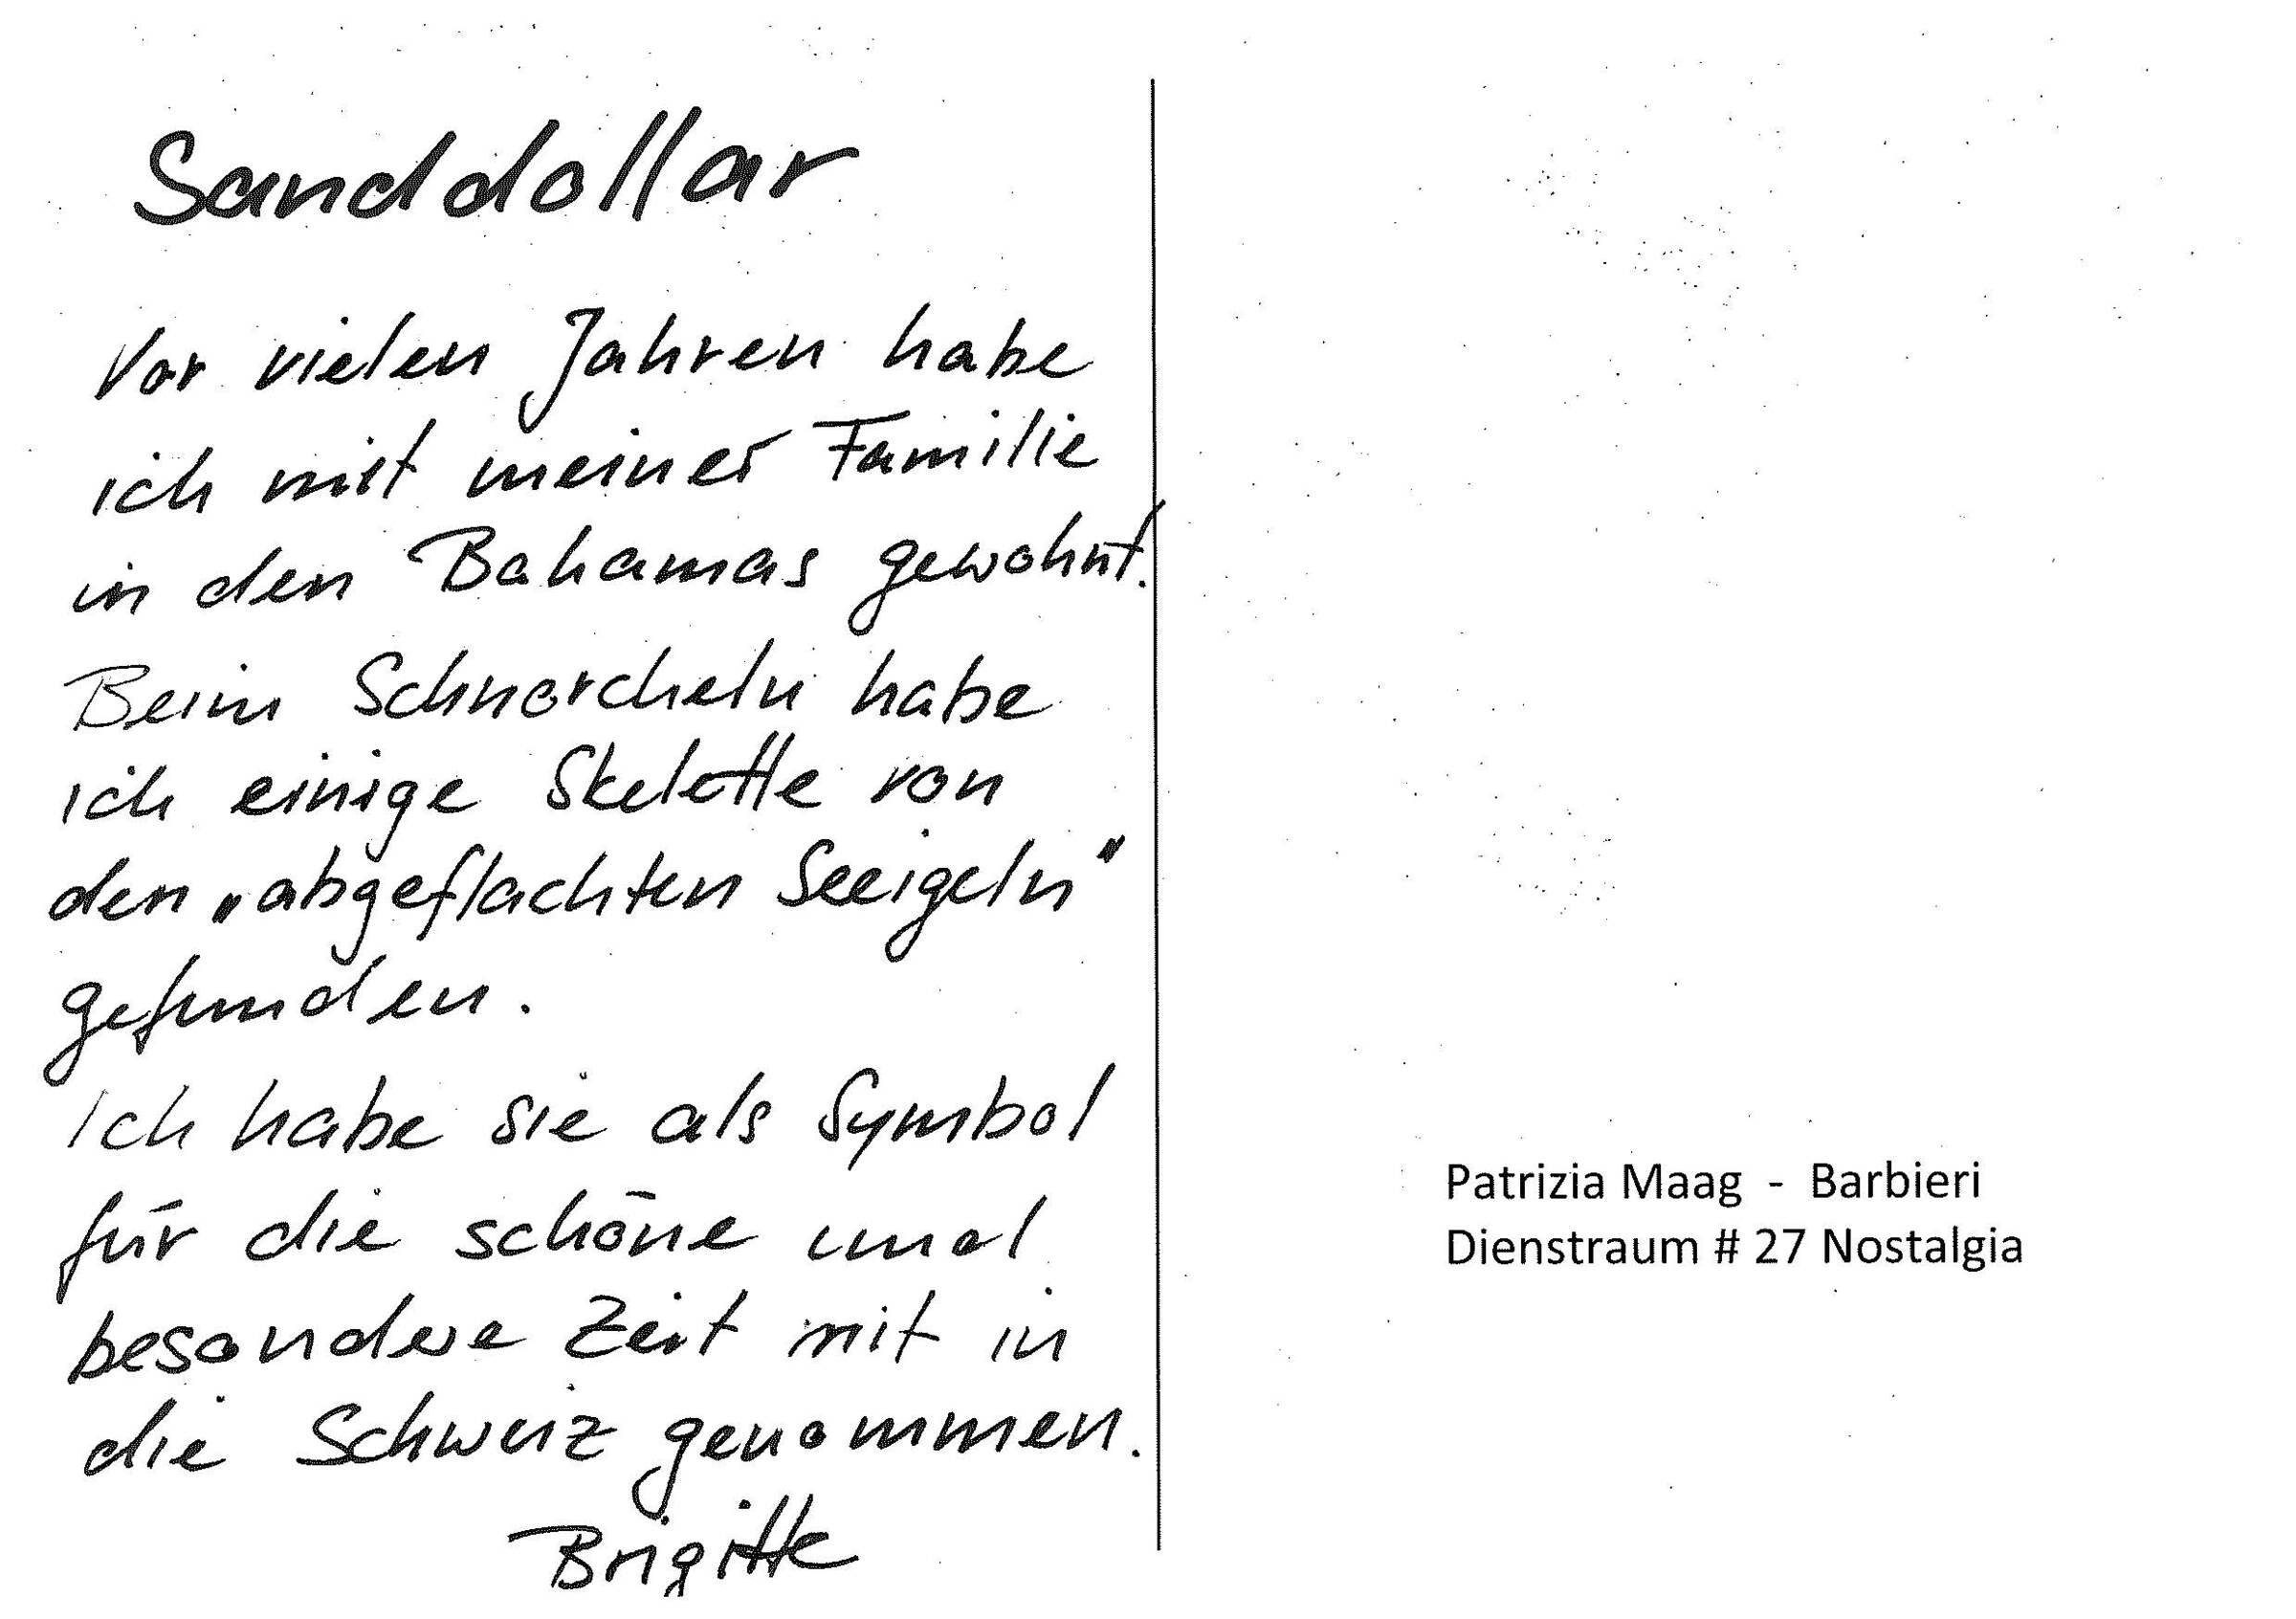 Sanddollar
Vor vielen Jahren habe
ich mit meiner Familie
in den Bahamas gewohnt.
Beim Schnorcheln habe
ich einige Skelette von
den „abgeflachten Seeigeln"
gefunden.
Ich habe sie als Symbol
für die schöne und
besondere Zeit mit in
die Schweiz genommen.
Brigitte
Patrizia Maag - Barbieri
Dienstraum # 27 Nostalgia